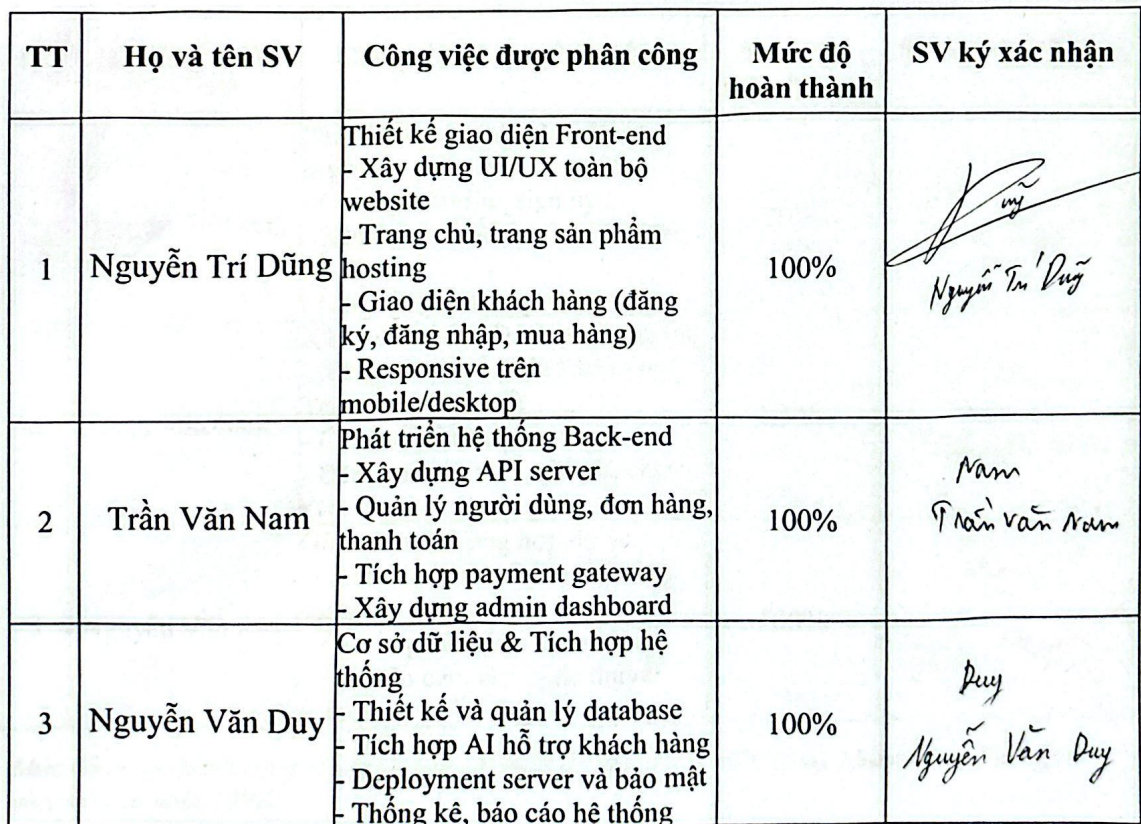 TT Họ và tên SV Công việc được phân công Mức độ hoàn thành SV ký xác nhận
Thiết kế giao diện Front-end
- Xây dựng UI/UX toàn bộ
website
- Trang chủ, trang sản phẩm
1 Nguyễn Trí Dũng hosting 100%
- Giao diện khách hàng (đăng
ký, đăng nhập, mua hàng)
- Responsive trên
mobile/desktop
Nguyễn Trí Dũng
Phát triển hệ thống Back-end
- Xây dựng API server
2 Trần Văn Nam - Quản lý người dùng, đơn hàng, 100%
thanh toán
- Tích hợp payment gateway
- Xây dựng admin dashboard
Nam
Trần Văn Nam
Cơ sở dữ liệu & Tích hợp hệ
thống
3 Nguyễn Văn Duy - Thiết kế và quản lý database 100%
- Tích hợp AI hỗ trợ khách hàng
- Deployment server và bảo mật
- Thống kê, báo cáo hệ thống
Duy
Nguyễn Văn Duy